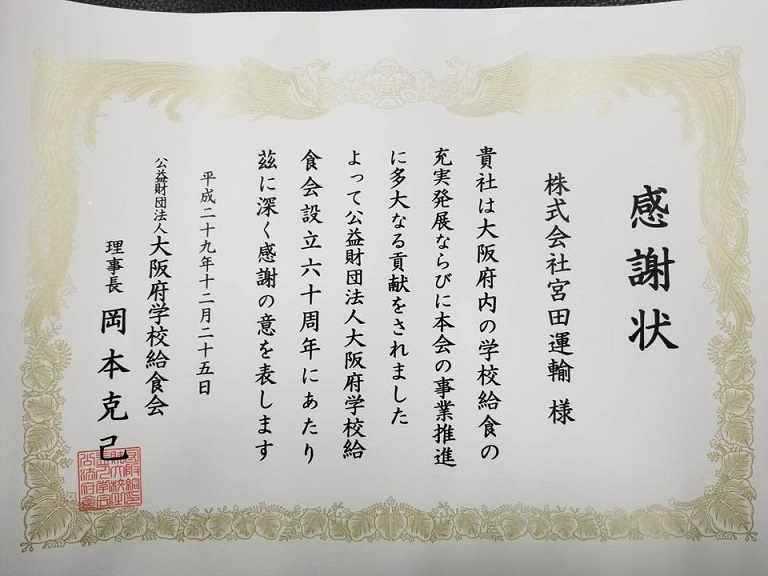 感謝状
株式会社宮田運輸 様
貴社は大阪府内の学校給食の
充実発展ならびに本会の事業推進
に多大なる貢献をされました
よって公益財団法人大阪府学校給
食会設立六十周年にあたり
茲に深く感謝の意を表します
平成二十九年十二月二十五日
公益財団法人大阪府学校給食会
理事長 岡本克己